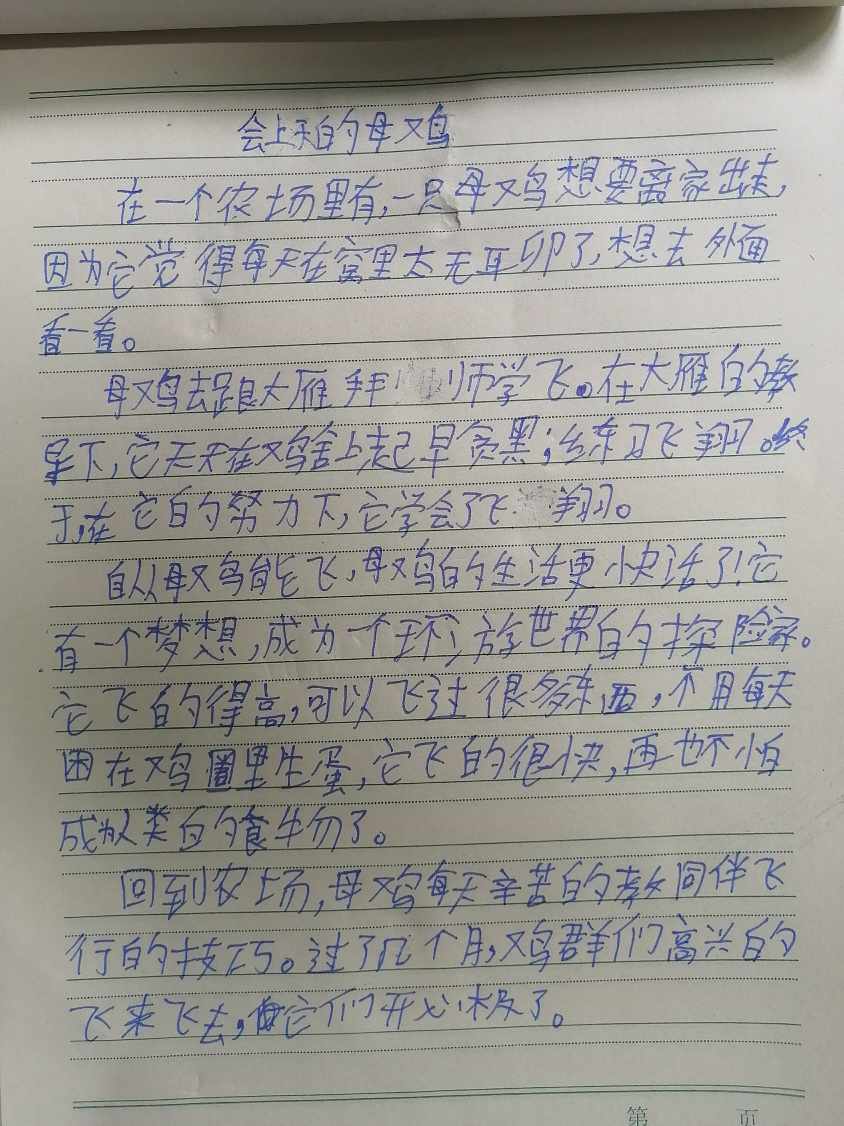 会上天的母鸡
在一个农场里有,一只母鸡想要离家出走,
因为它觉得每天在窝里太无耳卯了,想去外面
看一看。
母鸡去跟大雁拜师学飞。在大雁的教
导下,它天天在鸡舍上起早贪黑;练习飞翔。终
于,在它的努力下,它学会了飞翔。
自从母鸡能飞,母鸡的生活更快活了!它
有一个梦想,成为一个环游世界的探险家。
它飞的得高,可以飞过很多东西,不用每天
困在鸡圈里生蛋,它飞的很快,再也不怕
成为人类的食物了。
回到农场,母鸡每天辛苦的教同伴飞
行的技巧。过了几个月,鸡群们高兴的
飞来飞去,它们开心极了。
第 页